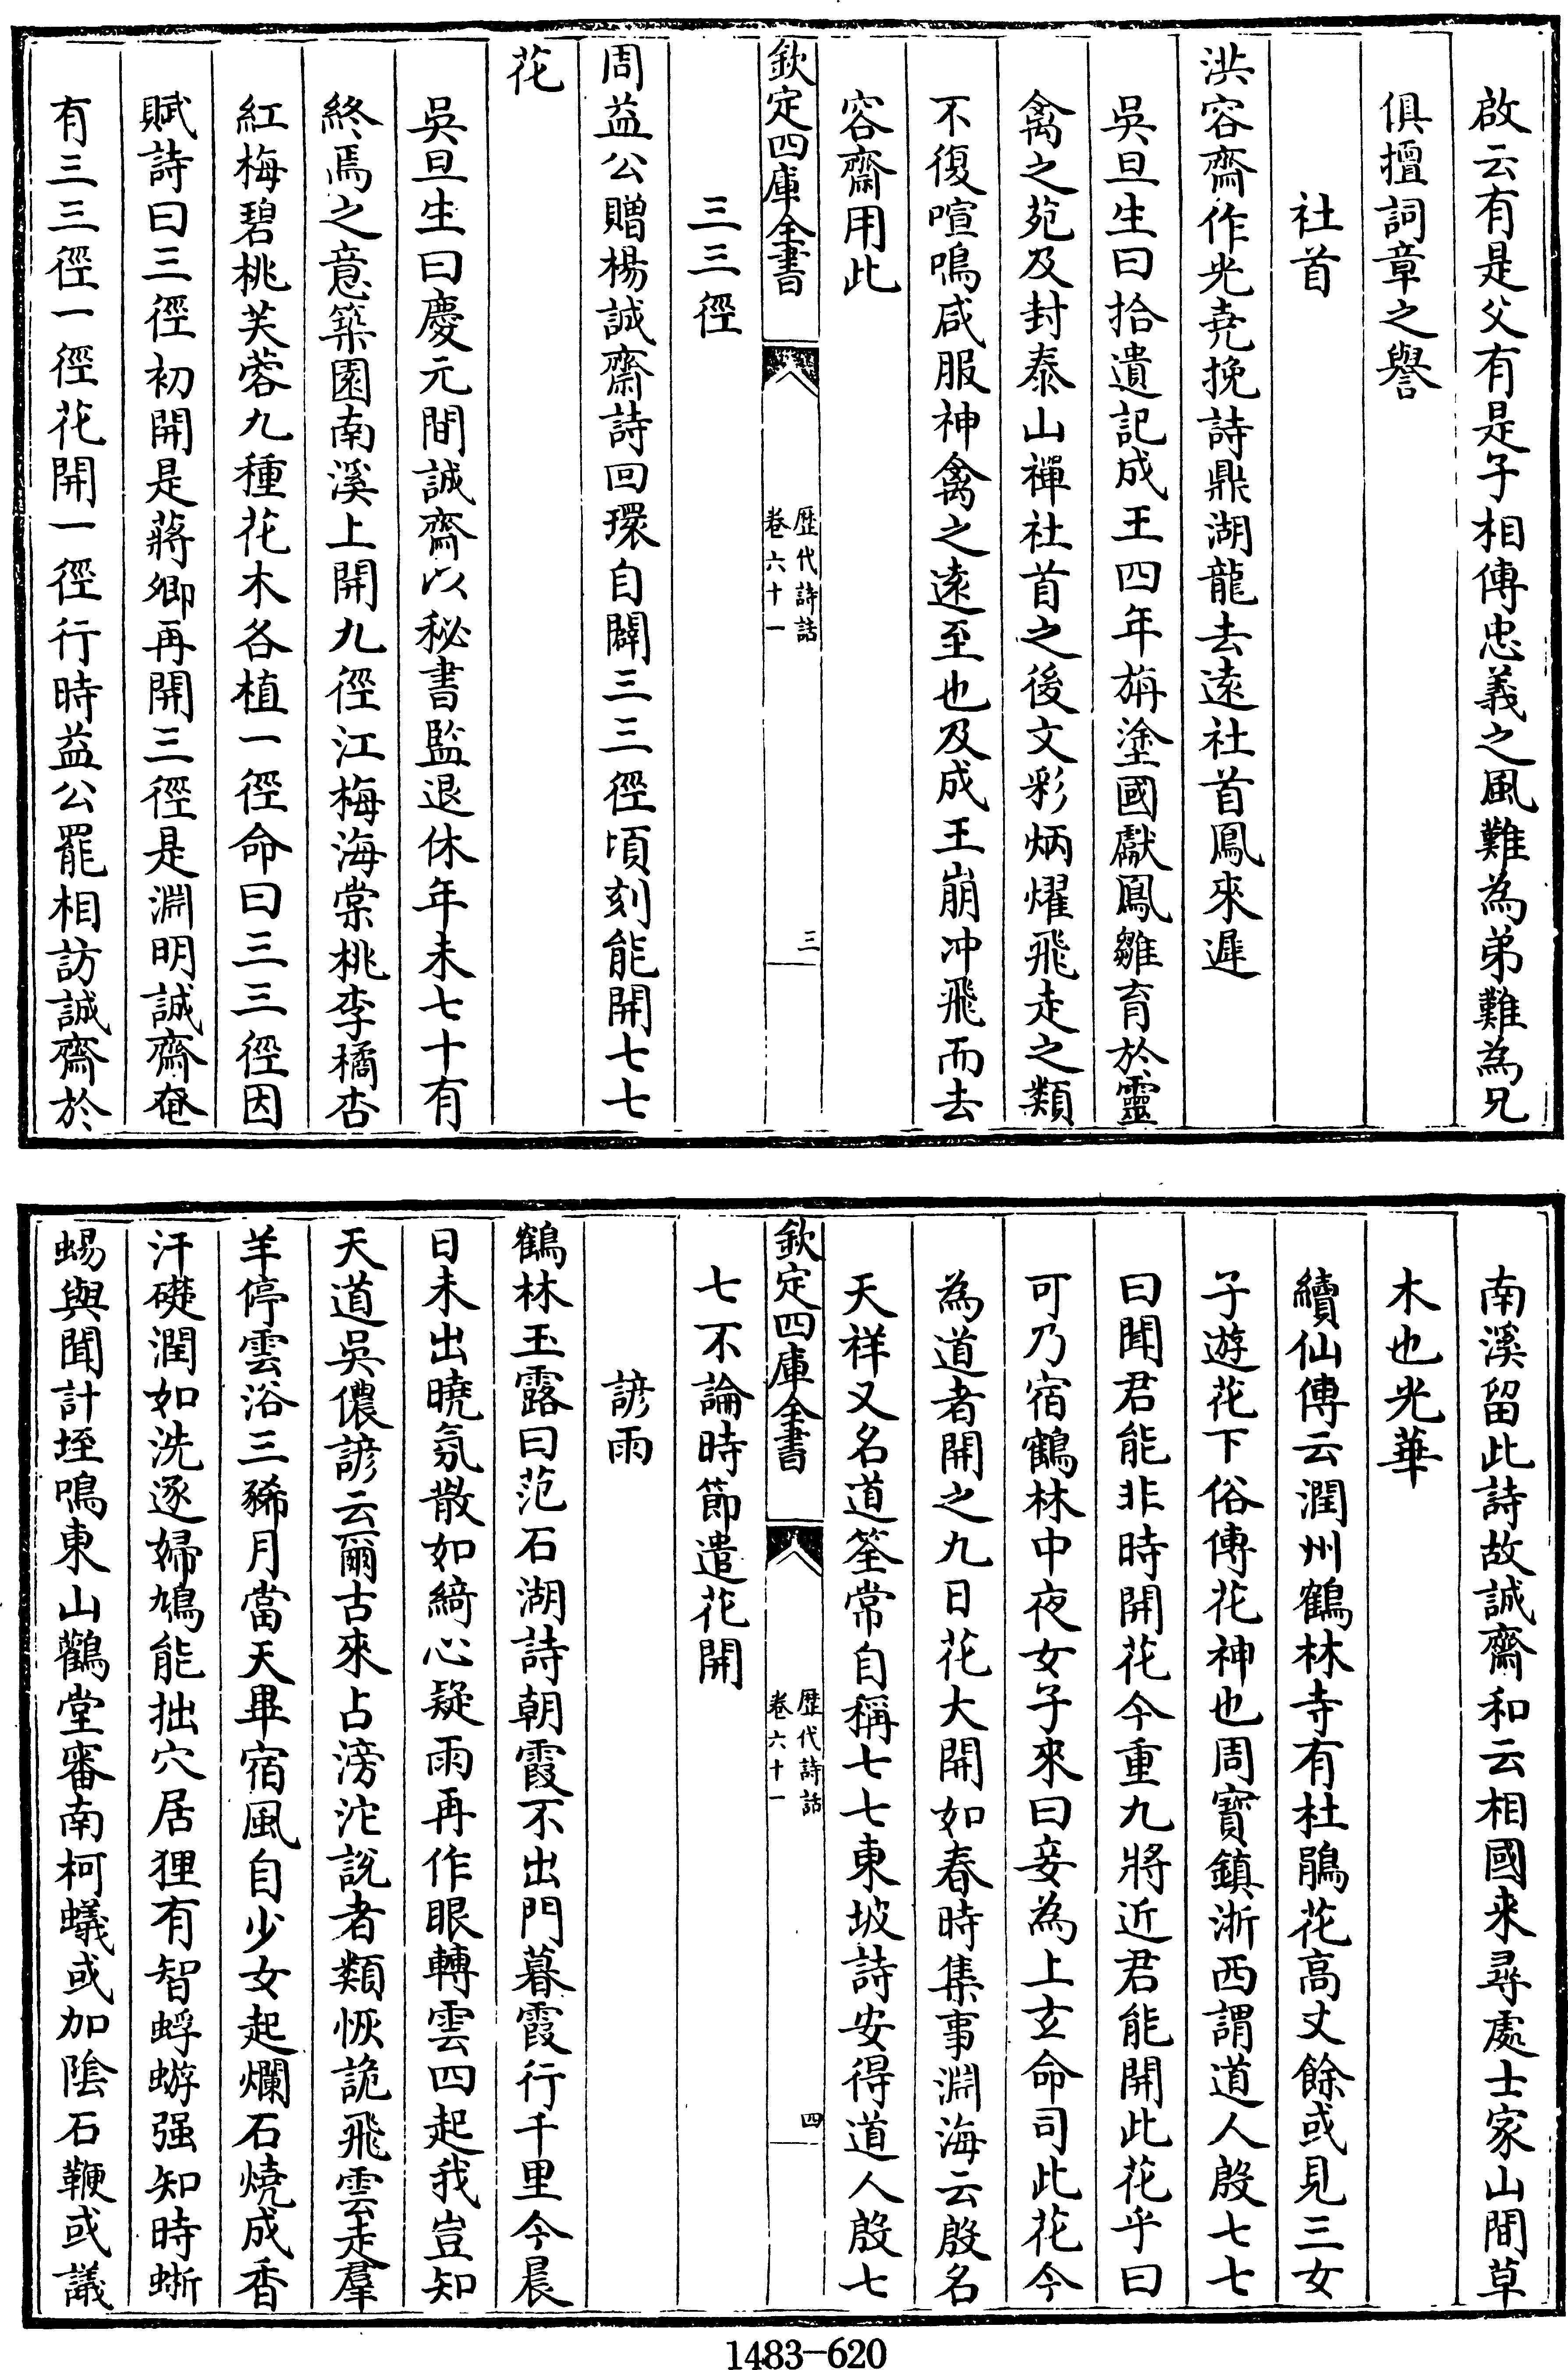 啟云有是父有是子相傳忠義之風難為弟難為兄
俱擅詞章之譽
社首
洪容齋作光堯挽詩鼎湖龍去遠社首鳳來遲
吳旦生曰拾遺記成王四年旃塗國獻鳳雛育於靈
禽之苑及封泰山禪社首之後文彩炳燿飛走之類
不復喧鳴咸服神禽之遠至也及成王崩冲飛而去
容齋用此
欽定四庫全書
歷代詩話
卷六十一
三
三三徑
周益公贈楊誠齋詩回環自闢三三徑頃刻能開七七
花
吳旦生曰慶元間誠齋以秘書監退休年未七十有
終焉之意築園南溪上開九徑江梅海棠桃李橘杏
紅梅碧桃芙蓉九種花木各植一徑命曰三三徑因
賦詩曰三徑初開是蔣卿再開三徑是淵明誠齋奄
有三三徑一徑花開一徑行時益公罷相訪誠齋於
南溪留此詩故誠齋和云相國来尋處士家山間草
木也光華
續仙傳云潤州鶴林寺有杜鵑花高丈餘或見三女
子遊花下俗傳花神也周寶鎮浙西謂道人殷七七
曰聞君能非時開花今重九將近君能開此花乎曰
可乃宿鶴林中夜女子來曰妾為上玄命司此花今
為道者開之九日花大開如春時集事淵海云殷名
天祥又名道筌常自稱七七東坡詩安得道人殷七
欽定四庫全書
歷代詩話
卷六十一
四
七不論時節遣花開
諺雨
鶴林玉露曰范石湖詩朝霞不出門暮霞行千里今晨
日未出曉氛散如綺心疑雨再作眼轉雲四起我豈知
天道吳儂諺云爾古來占滂沱說者類恢詭飛雲走羣
羊停雲浴三豨月當天畢宿風自少女起爛石燒成香
汗礎潤如洗逐婦鳩能拙穴居狸有智蜉蝣强知時蜥
蜴與聞計垤鳴東山鸛堂審南柯蟻或加陰石鞭或議
1483-620